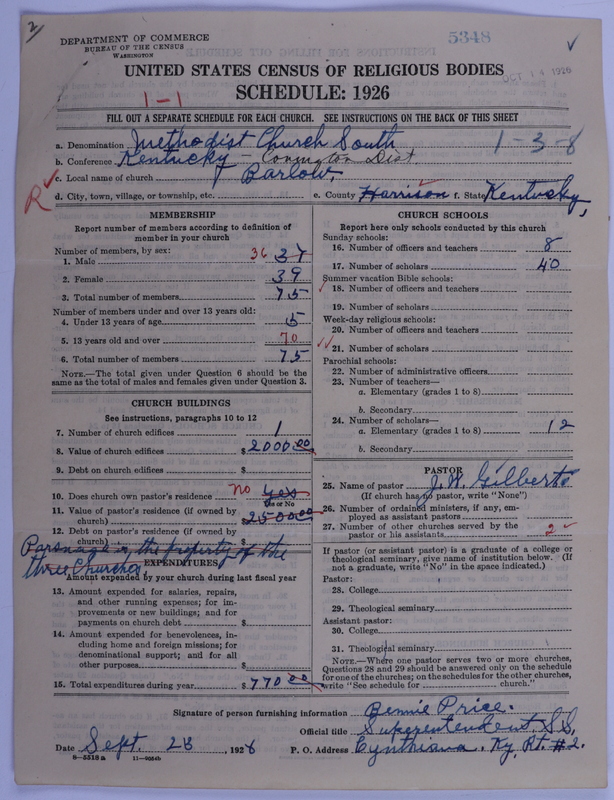 2
DEPARTMENT OF COMMERCE
BUREAU OF THE CENSUS
WASHINGTON
5348
UNITED STATES CENSUS OF RELIGIOUS BODIES
OCT 14 1926
SCHEDULE: 1926
1-1
FILL OUT A SEPARATE SCHEDULE FOR EACH CHURCH. SEE INSTRUCTIONS ON THE BACK OF THIS SHEET
a. Denomination Methodist Church South
1-3-8
b. Conference Kentucky - Covington Dist
c. Local name of church Barlow
R
d. City, town, village, or township, etc. e. County Harrison f. State Kentucky,
MEMBERSHIP
Report number of members according to definition of member in your church
Number of members, by sex:
1. Male 36 37
2. Female 39
3. Total number of members 75
Number of members under and over 13 years old:
4. Under 13 years of age 5
5. 13 years old and over 70
6. Total number of members 75
NOTE.—The total given under Question 6 should be the same as the total of males and females given under Question 3.
CHURCH BUILDINGS
See instructions, paragraphs 10 to 12
7. Number of church edifices 1
8. Value of church edifices $ 2000.00
9. Debt on church edifices $
10. Does church own pastor's residence no yes
Yes or No
11. Value of pastor's residence (if owned by church) $ 2500.00
12. Debt on pastor's residence (if owned by church) $
Parsonage is the property of the
three Churches
EXPENDITURES
Amount expended by your church during last fiscal year
13. Amount expended for salaries, repairs, and other running expenses; for improvements or new buildings; and for payments on church debt $
14. Amount expended for benevolences, including home and foreign missions; for denominational support; and for all other purposes $
15. Total expenditures during year $ 770.00
CHURCH SCHOOLS
Report here only schools conducted by this church
Sunday schools:
16. Number of officers and teachers 8
17. Number of scholars 40
Summer vacation Bible schools:
18. Number of officers and teachers
19. Number of scholars
Week-day religious schools:
20. Number of officers and teachers
21. Number of scholars
Parochial schools:
22. Number of administrative officers
23. Number of teachers—
a. Elementary (grades 1 to 8)
b. Secondary
24. Number of scholars—
a. Elementary (grades 1 to 8) 12
b. Secondary
PASTOR
25. Name of pastor J. W. Gilberts
(If church has no pastor, write "None")
26. Number of ordained ministers, if any, employed as assistant pastors
27. Number of other churches served by the pastor or his assistants 2
If pastor (or assistant pastor) is a graduate of a college or theological seminary, give name of institution below. (If not a graduate, write "No" in the space indicated.)
Pastor:
28. College
29. Theological seminary
Assistant pastor:
30. College
31. Theological seminary
NOTE.—Where one pastor serves two or more churches, Questions 28 and 29 should be answered only on the schedule for one of the churches; on the schedules for the other churches, write "See schedule for church."
Signature of person furnishing information Bennie Price.
Official title Superentendent, S.S.
Date Sept. 28, 1926 P. O. Address Cynthiana, Ky. Rt. #2.
8—5518a 11—9064b